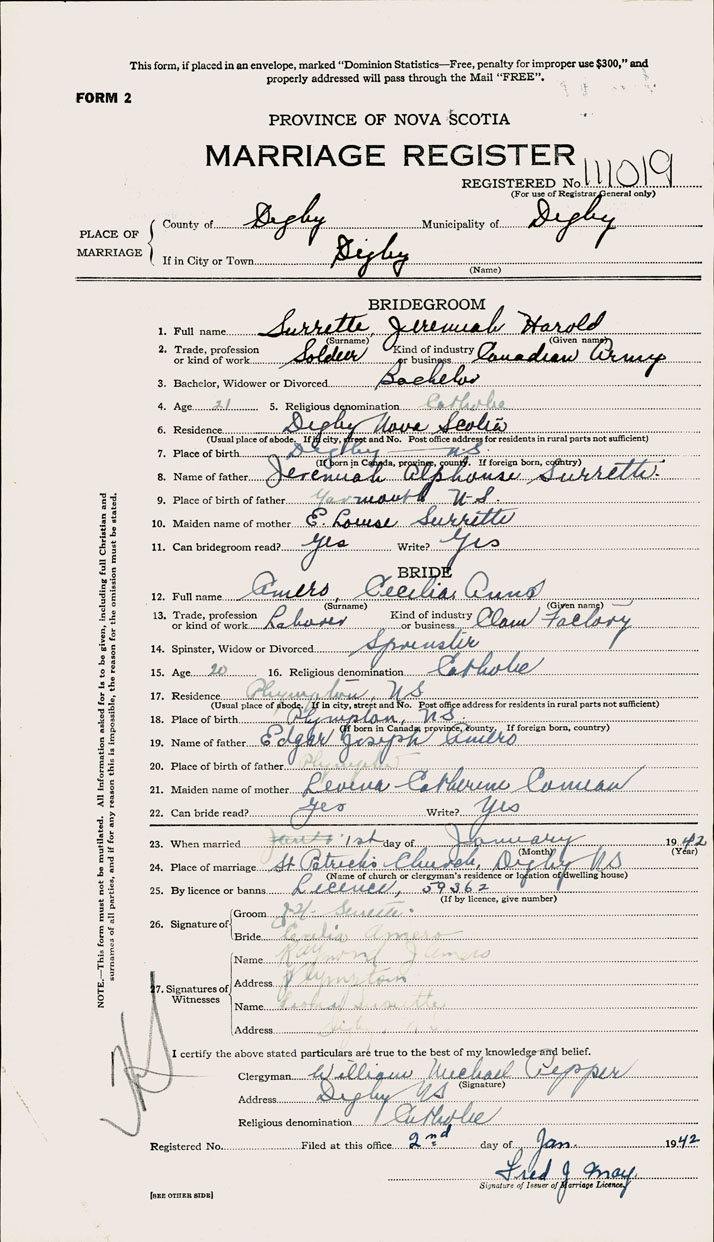 This form, if placed in an envelope, marked "Dominion Statistics—Free, penalty for improper use $300," and
properly addressed will pass through the Mail "FREE".
FORM 2
PROVINCE OF NOVA SCOTIA
MARRIAGE REGISTER
REGISTERED No. 111019
(For use of Registrar General only)
PLACE OF MARRIAGE
County of Digby Municipality of Digby
If in City or Town Digby
(Name)
BRIDEGROOM
1. Full name Surrette, Jeremiah Harold
(Surname) (Given name)
2. Trade, profession or kind of work Soldier Kind of industry or business Canadian Army
3. Bachelor, Widower or Divorced Bachelor
4. Age 21 5. Religious denomination Catholic
6. Residence Digby Nova Scotia
(Usual place of abode. If in city, street and No. Post office address for residents in rural parts not sufficient)
7. Place of birth Digby N.S.
(If born in Canada, province, county. If foreign born, country)
8. Name of father Jeremiah Alphonse Surrette
9. Place of birth of father Yarmouth N.S.
10. Maiden name of mother E. Louise Surrette
11. Can bridegroom read? Yes Write? Yes
BRIDE
12. Full name Amero, Cecilia Anna
(Surname) (Given name)
13. Trade, profession or kind of work Laborer Kind of industry or business Clam Factory
14. Spinster, Widow or Divorced Spinster
15. Age 20 16. Religious denomination Catholic
17. Residence Plympton, NS
(Usual place of abode. If in city, street and No. Post office address for residents in rural parts not sufficient)
18. Place of birth Plympton, NS.
(If born in Canada, province, county. If foreign born, country)
19. Name of father Edgar Joseph Amero
20. Place of birth of father Plympton
21. Maiden name of mother Levina Catherine Comeau
22. Can bride read? Yes Write? Yes
23. When married 1st day of January 1942
(Month) (Year)
24. Place of marriage St Patrick's Church, Digby NS
(Name of church or clergyman's residence or location of dwelling house)
25. By licence or banns Licence, 59362
(If by licence, give number)
26. Signature of
Groom J.H. Surette
Bride Cecilia Amero
27. Signatures of Witnesses
Name Raymond Amero
Address Plympton
Name Surrette
Address Digby N.S.
I certify the above stated particulars are true to the best of my knowledge and belief.
Clergyman William Michael Pepper
(Signature)
Address Digby NS
Religious denomination Catholic
Registered No. Filed at this office 2nd day of Jan. 1942
Fred J May
Signature of Issuer of Marriage Licence.
[SEE OTHER SIDE]
NOTE.—This form must not be mutilated. All information asked for is to be given, including full Christian and
surnames of all parties, and if for any reason this is impossible, the reason for the omission must be stated.